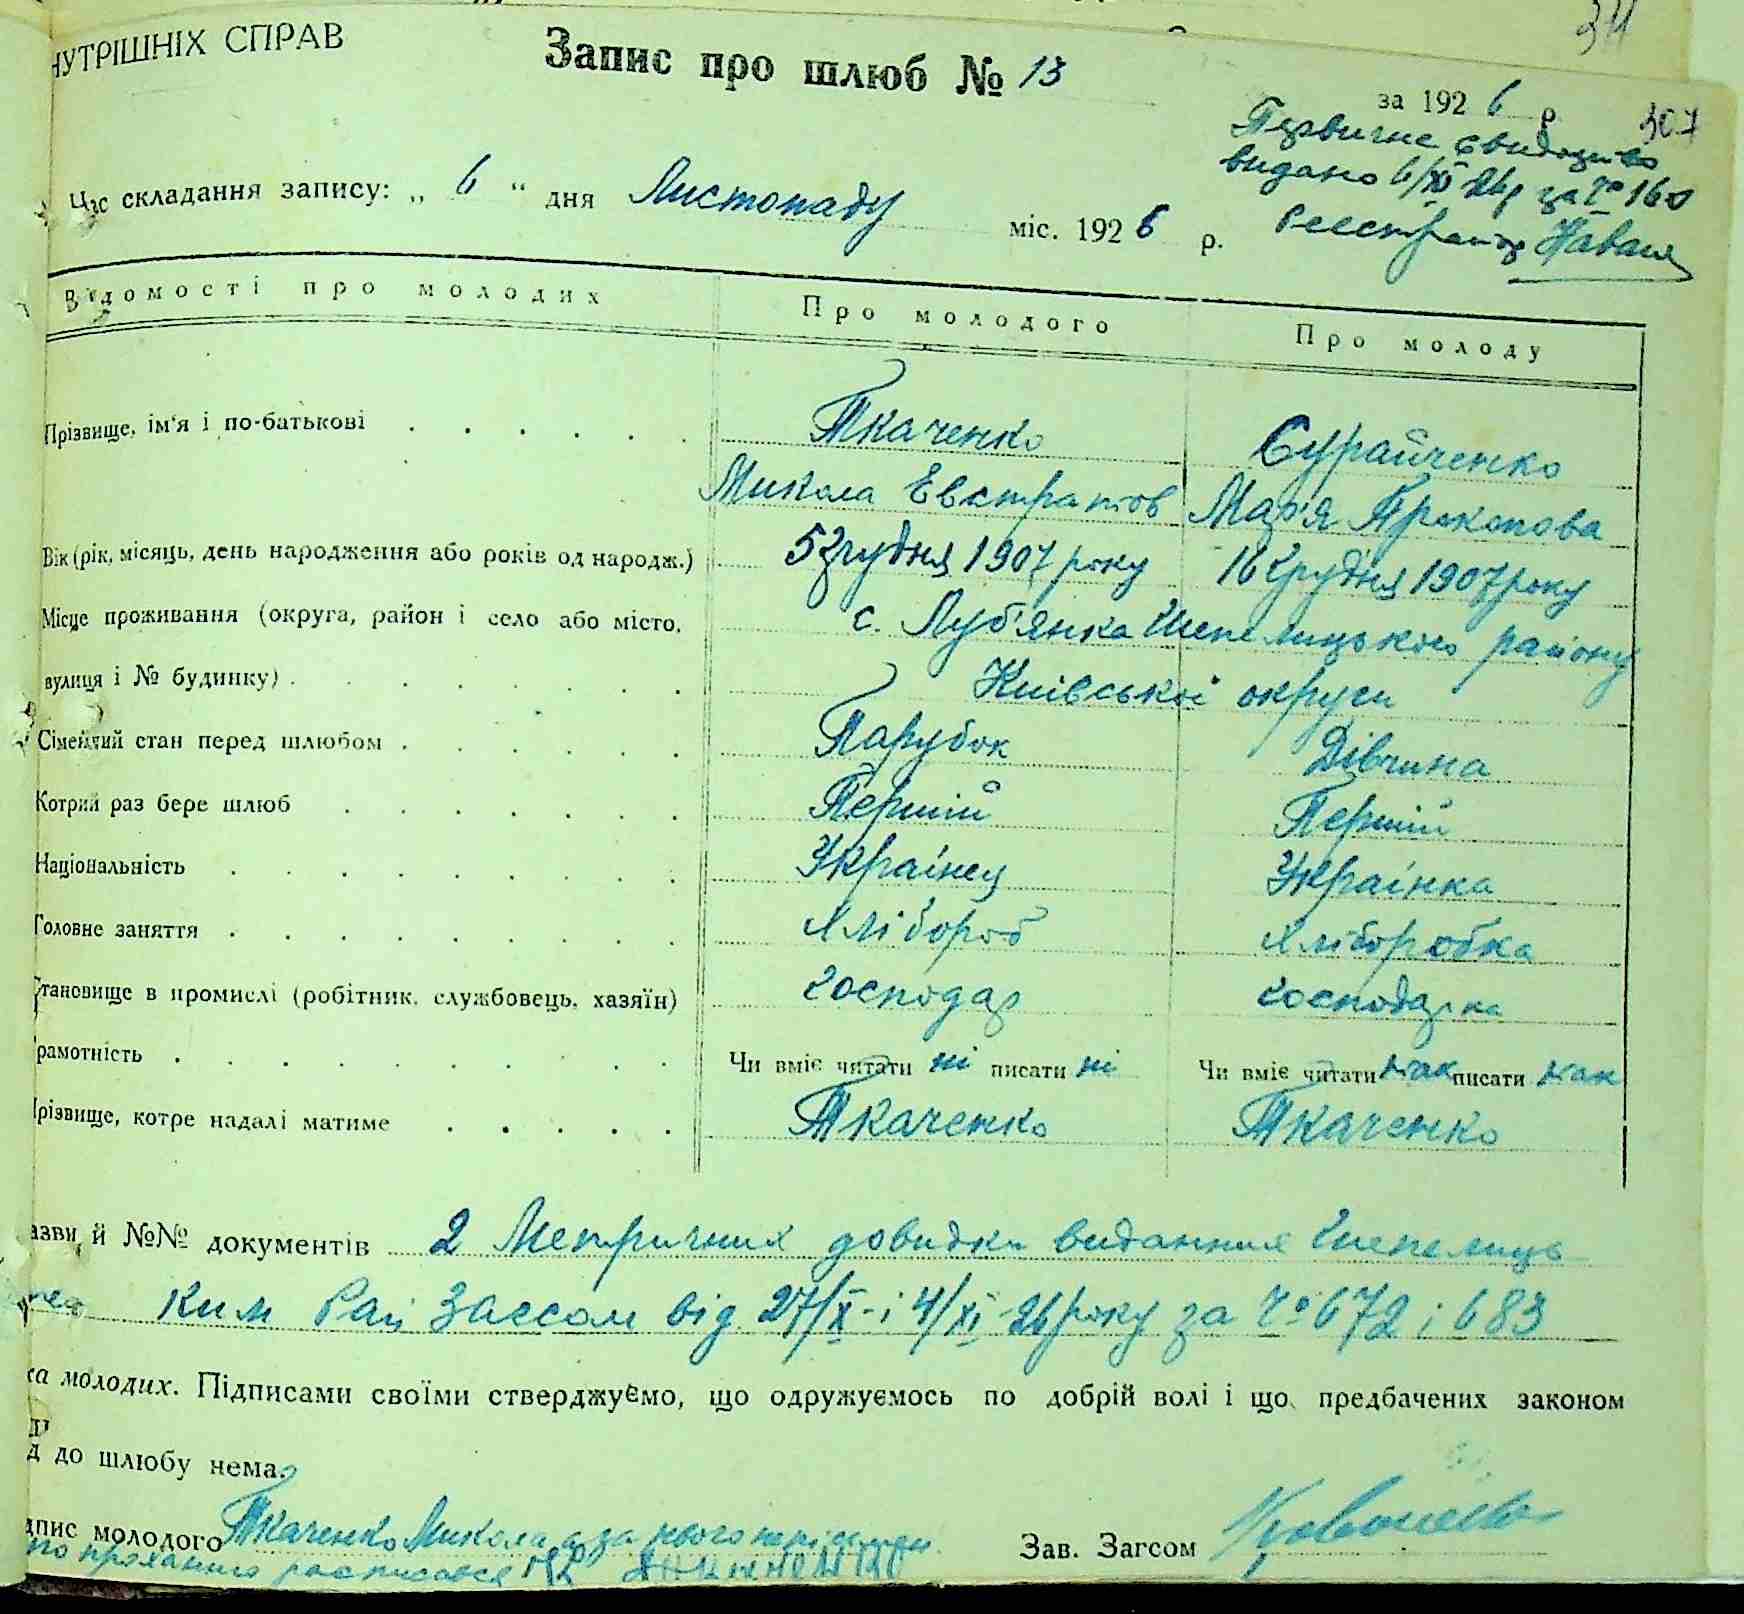 НУТРІШНІХ СПРАВ
34
Запис про шлюб № 13
за 1926 р.
307
Первичне свидоцтво
видано 6/XI 26р за № 160
Реєстратор
Час складання запису: „ 6 “ дня Листопаду міс. 1926 р.
Відомості про молодих Про молодого Про молоду
Прізвище, ім'я і по-батькові Ткаченко Сурайченко
Микола Евстратов Мар'я Прокопова
Вік (рік, місяць, день народження або років од народж.) 5 грудня 1907 року 16 грудня 1907 року
Місце проживання (округа, район і село або місто, с. Луб'янка Шепелицького району
вулиця і № будинку) Київської округи
Сімейний стан перед шлюбом Парубок Дівчина
Котрий раз бере шлюб Перший Перший
Національність Українец Українка
Головне заняття Хлібороб Хлiборобка
Становище в промислі (робітник, службовець, хазяїн) господар господарка
рамотність Чи вміє читати ні писати ні Чи вміє читати так писати так
різвище, котре надалі матиме Ткаченко Ткаченко
азви й №№ документів 2 Метричних довидки виданних Шепелиць
ким Рай Загсом від 27/X і 4/XI 26 року за № 672 і 683
ка молодих. Підписами своїми стверджуємо, що одружуємось по добрій волі і що предбачених законом
д до шлюбу нема.
дпис молодого Ткаченко Микола а за нього
Зав. Загсом
его проханню расписався